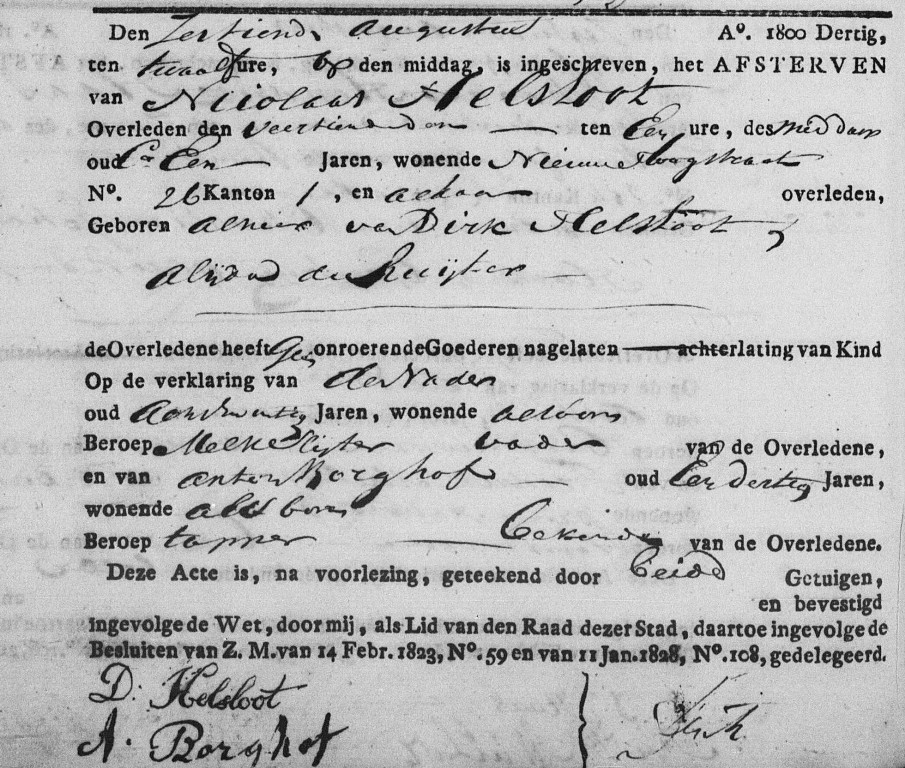 Den Zestiende Augustus A°. 1800 Dertig,
ten twaalf ure, op den middag, is ingeschreven, het AFSTERVEN
van Nicolaas Helsloot
Overleden den veertienden ten Een ure, des middags
oud Ca Een Jaren, wonende Nieuwe Hoogstraat
N°. 26 Kanton 1, en aldaar overleden,
Geboren alhier van Dirk Helsloot
Alijda de Ruijter
de Overledene heeft Geen onroerende Goederen nagelaten achterlating van Kind
Op de verklaring van de Vader
oud Jaren, wonende als boven
Beroep Melkslijter Vader van de Overledene,
en van Anton Borghof oud Een dertig Jaren,
wonende als boven
Beroep tapper bekende van de Overledene.
Deze Acte is, na voorlezing, geteekend door beide Getuigen,
en bevestigd
ingevolge de Wet, door mij, als Lid van den Raad dezer Stad, daartoe ingevolge de
Besluiten van Z. M. van 14 Febr. 1823, N°. 59 en van 11 Jan. 1828, N°. 108, gedelegeerd.
D: Helsloot
A. Borghof